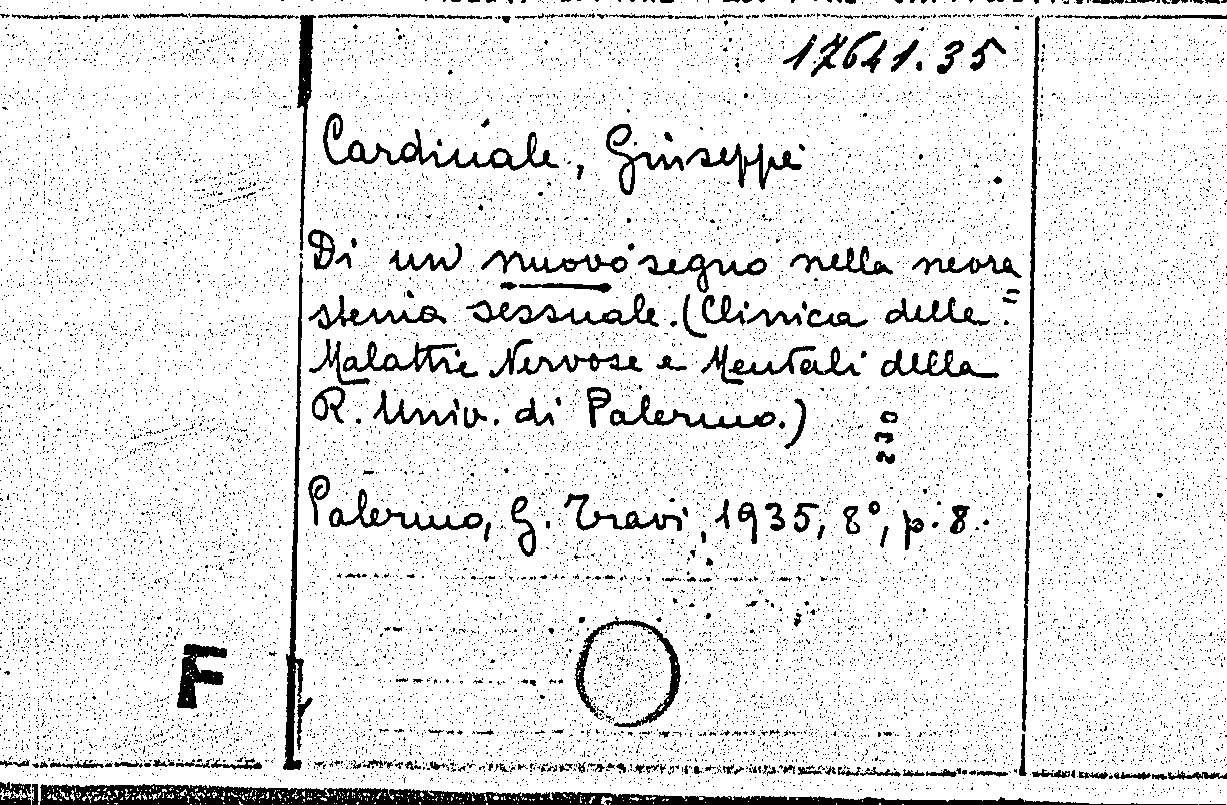 17641.35
Cardinale, Giuseppe
Di un nuovo segno nella neora
stenia sessuale. (Clinica delle =
Malattie Nervose e Mentali della
R. Univ. di Palermo.)
230
Palermo, G. Travi, 1935, 8°, p. 8.
F